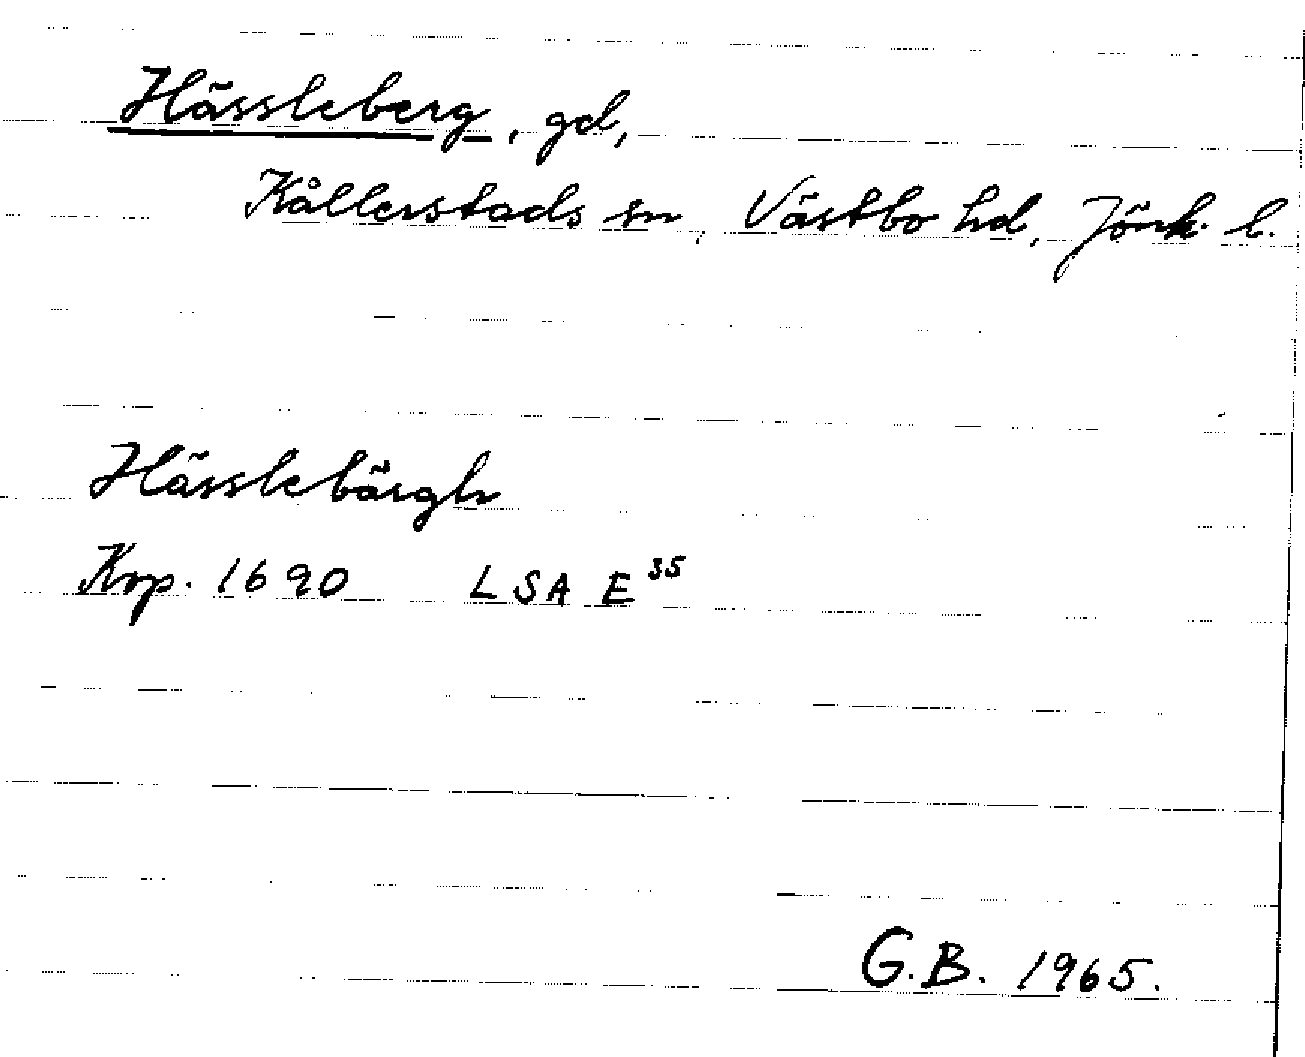 Hässleberg, gd,
Kållerstads sn, Västbo hd, Jönk. l.
Hässlebärgh
Krp. 1690 LSA E³⁵
G.B. 1965.